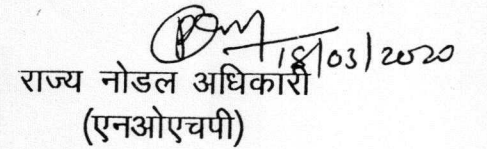 18/03/2020
राज्य नोडल अधिकारी
(एनओएचपी)